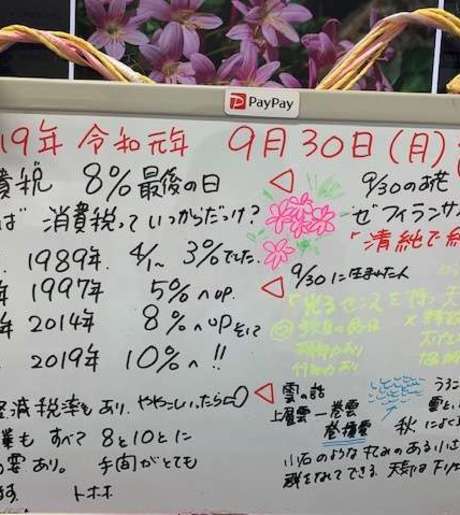 PayPay
19年 令和元年 9月30日(月)
費税 8%最後の日
ば 消費税っていつからだっけ?
1989年 4/1~ 3%でした.
年 1997年 5%へup.
年 2014年 8%へupそして
2019年 10%へ!!
経減税率もあり. ややこしいったら
業も すべて 8と10とに
の要あり. 手間がとても
ます. トホホ
9/30のお花
ゼフィランサ
「清純で
9/30に生まれた人
雲の話
上層雲一巻雲
巻積雲
うろこ
雲と
秋 によく
小石のような 丸みのある小さ
群をなしてできる. 天気は下り